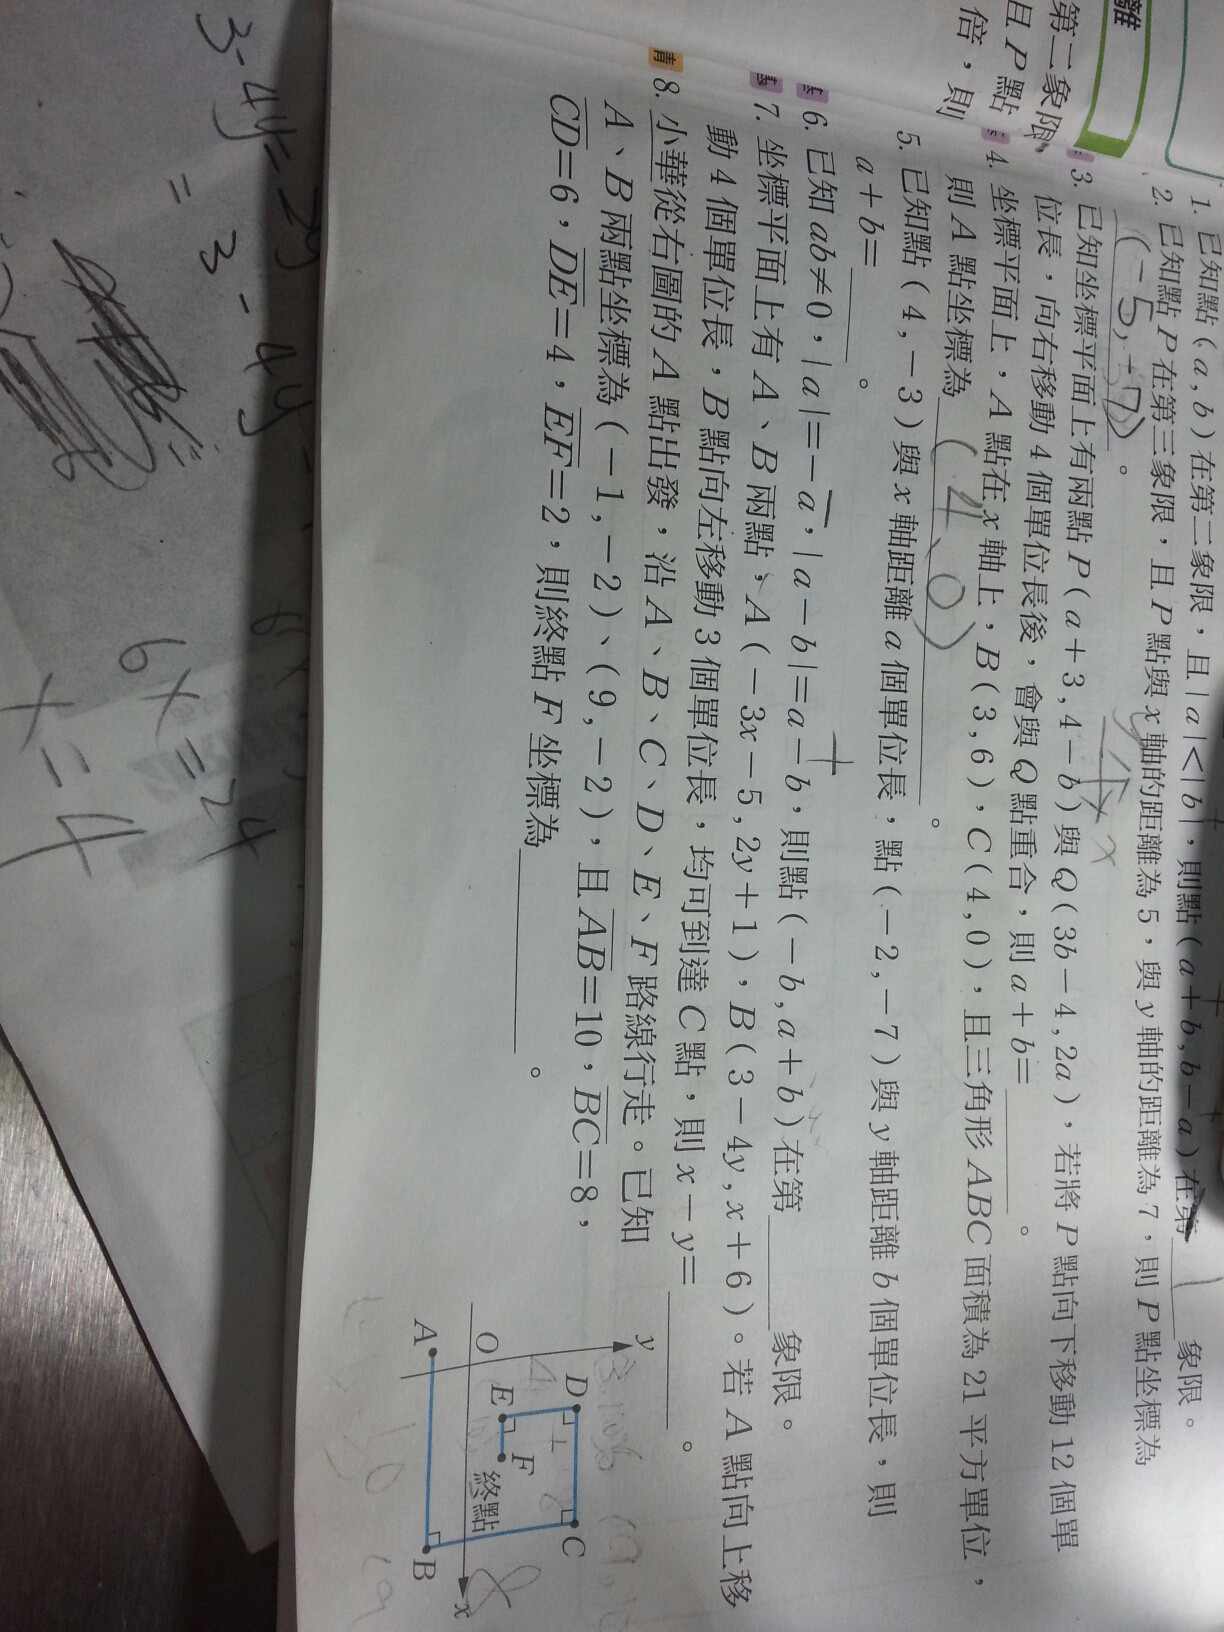 離
第二象限，
且P點
倍，則
1. 已知點(a,b)在第二象限，且|a|<|b|，則點(a+b,b-a)在第 1 象限。
2. 已知點P在第三象限，且P點與x軸的距離為5，與y軸的距離為7，則P點坐標為
(-5,-7)。
3. 已知坐標平面上有兩點P(a+3,4-b)與Q(3b-4,2a)，若將P點向下移動12個單
位長，向右移動4個單位長後，會與Q點重合，則a+b=。
4. 坐標平面上，A點在x軸上，B(3,6)，C(4,0)，且三角形ABC面積為21平方單位，
則A點坐標為(4、0)。
5. 已知點(4,-3)與x軸距離a個單位長，點(-2,-7)與y軸距離b個單位長，則
a+b=。
基 6. 已知ab≠0，|a|=-a，|a-b|=a-b，則點(-b,a+b)在第象限。
基 7. 坐標平面上有A、B兩點，A(-3x-5,2y+1)，B(3-4y,x+6)。若A點向上移
動4個單位長，B點向左移動3個單位長，均可到達C點，則x-y=。
8. 小華從右圖的A點出發，沿A、B、C、D、E、F路線行走。已知
A、B兩點坐標為(-1,-2)、(9,-2)，且AB=10，BC=8，
CD=6，DE=4，EF=2，則終點F坐標為。
y
D C
E F
終點
O x
A B
8
3-4y=
= 3-4y
6x=24
x=4